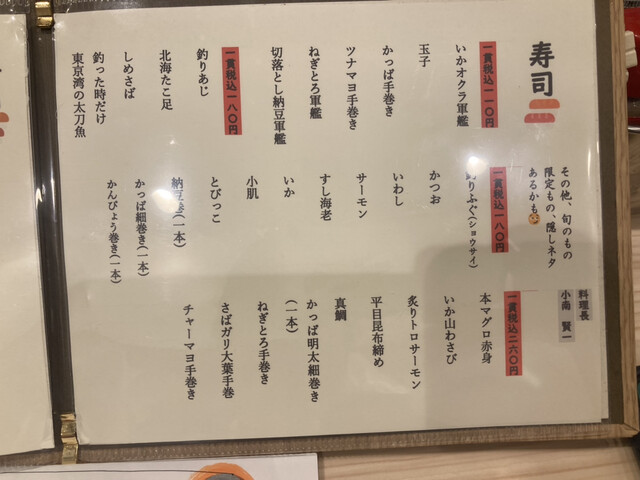 寿司
一貫税込一一〇円
いかオクラ軍艦
玉子
かっぱ手巻き
ツナマヨ手巻き
ねぎとろ軍艦
切落とし納豆軍艦
一貫税込一八〇円
釣りあじ
北海たこ足
しめさば
釣った時だけ
東京湾の太刀魚
その他、旬のもの
限定もの、隠しネタ
あるかも
一貫税込一八〇円
釣りふぐ(ショウサイ)
かつお
いわし
サーモン
すし海老
いか
小肌
とびっこ
納豆巻(一本)
かっぱ細巻き(一本)
かんぴょう巻き(一本)
料理長
小南 賢一
一貫税込二六〇円
本マグロ赤身
いか山わさび
炙りトロサーモン
平目昆布締め
真鯛
かっぱ明太細巻き
(一本)
ねぎとろ手巻き
さばガリ大葉手巻
チャーマヨ手巻き